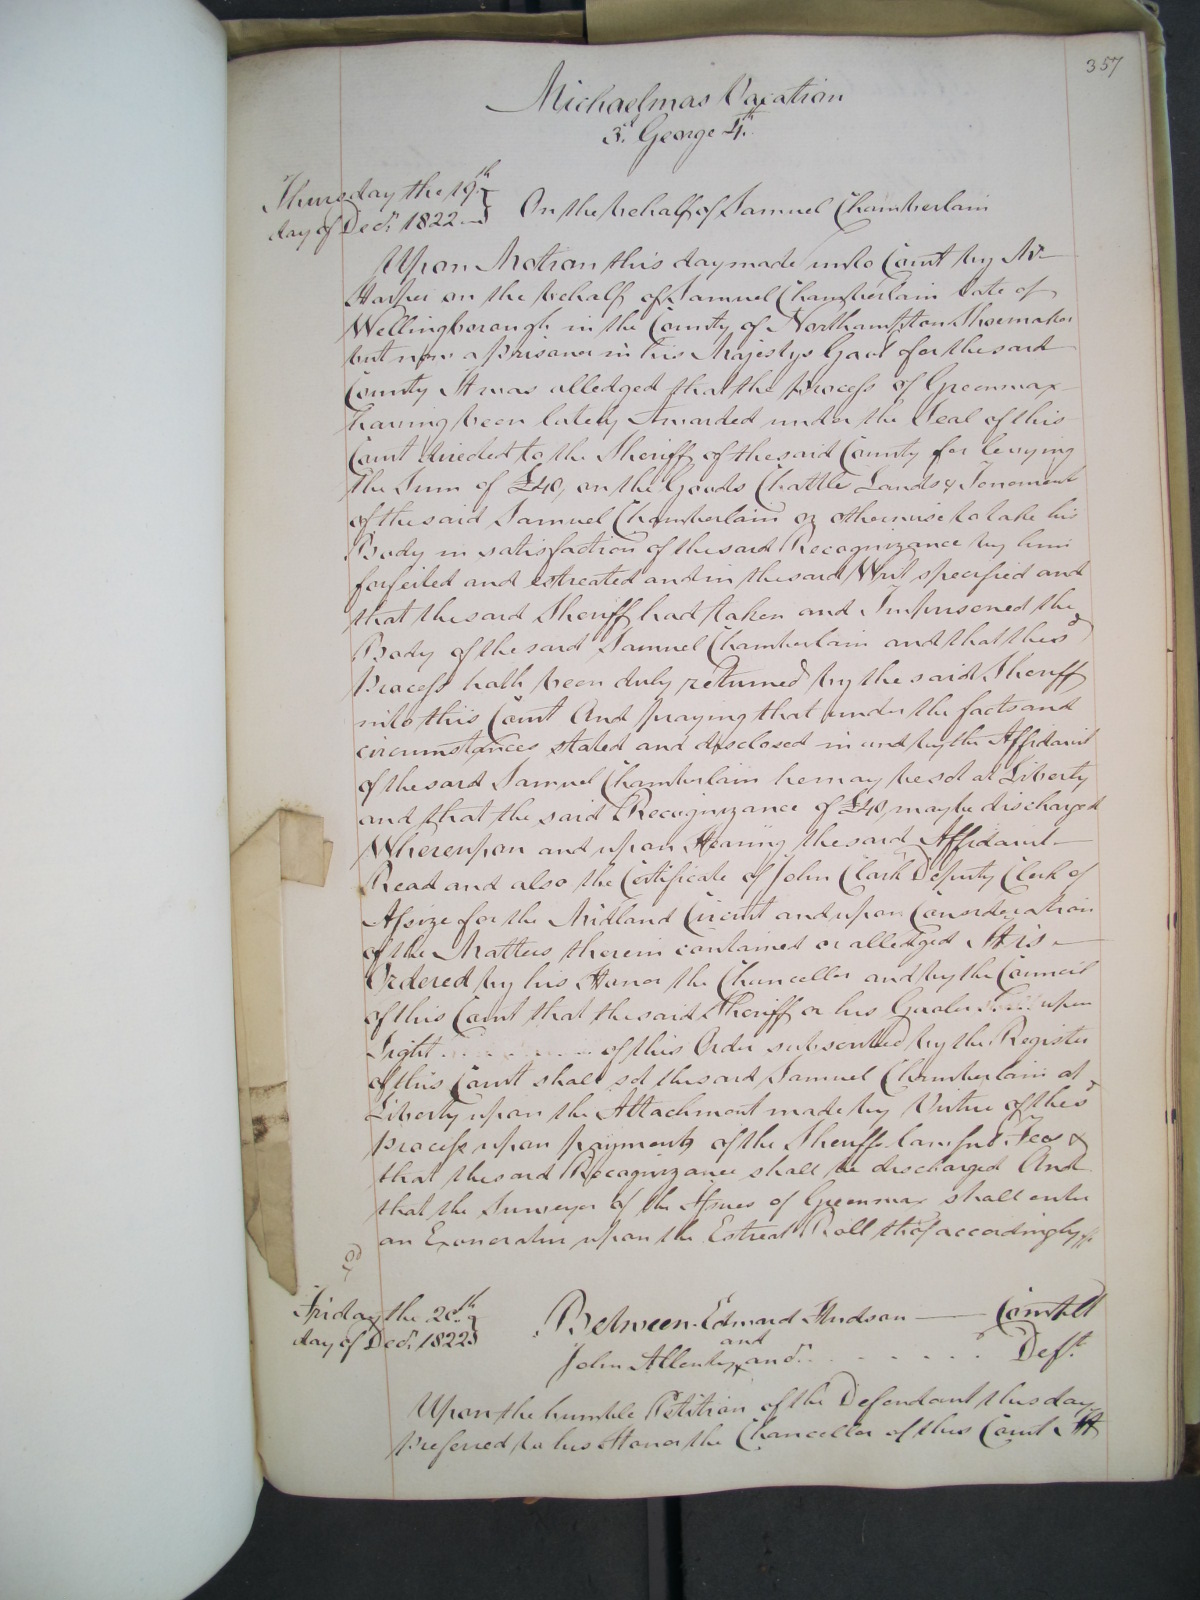 357
Michaelmas Vacation
3d. George 4th.
Thursday the 19th
day of Decr. 1822
On the behalf of Samuel Chamberlain
Upon Motion this day made unto Court by Mr
Harper on the behalf of Samuel Chamberlain late of
Wellingborough in the County of Northampton Shoemaker
but now a prisoner in his Majestys Gaol for the said
County It was alledged that the process of Greenwax
having been lately Awarded under the Seal of this
Court directed to the Sheriff of the said County for levying
the Sum of £40, on the Goods Chattle Lands & Tenement
of the said Samuel Chamberlain or otherwise to take his
Body in satisfaction of the said Recognizance by him
forfeited and estreated and in the said Writ specified and
that the said Sheriff had taken and Imprisoned the
Body of the said Samuel Chamberlain and that the sd
Process hath been duly returned by the said Sheriff
into this Court And praying that under the facts and
circumstances stated and disclosed in and by the Affidavit
of the said Samuel Chamberlain he may be set at Liberty
and that the said Recognizance of £40, may be discharged
Whereupon and upon Hearing the said Affidavit
Read and also the Certificate of John Clark Deputy Clerk of
Assize for the Midland Circuit and upon Consideration
of the Matters therein contained or alledged It is
Ordered by his Honor the Chancellor and by the Council
of this Court that the said Sheriff or his Gaoler upon
Sight of this Order subscribed by the Register
of this Court shall set the said Samuel Chamberlain at
Liberty upon the Attachment made by Virtue of the sd
Process upon payment of the Sheriffs lawful Fees &
that the said Recognizance shall be discharged And
that the Surveyor of the Issues of Greenwax shall enter
an Exoneratur upon the Estreat Roll thof accordingly
Friday the 20th
day of Decr. 1822
Between Edward Hudson Complt
and
John Allenby and Deft.
Upon the humble Petition of the Defendant this day
preferred to his Honor the Chancellor of this Court It